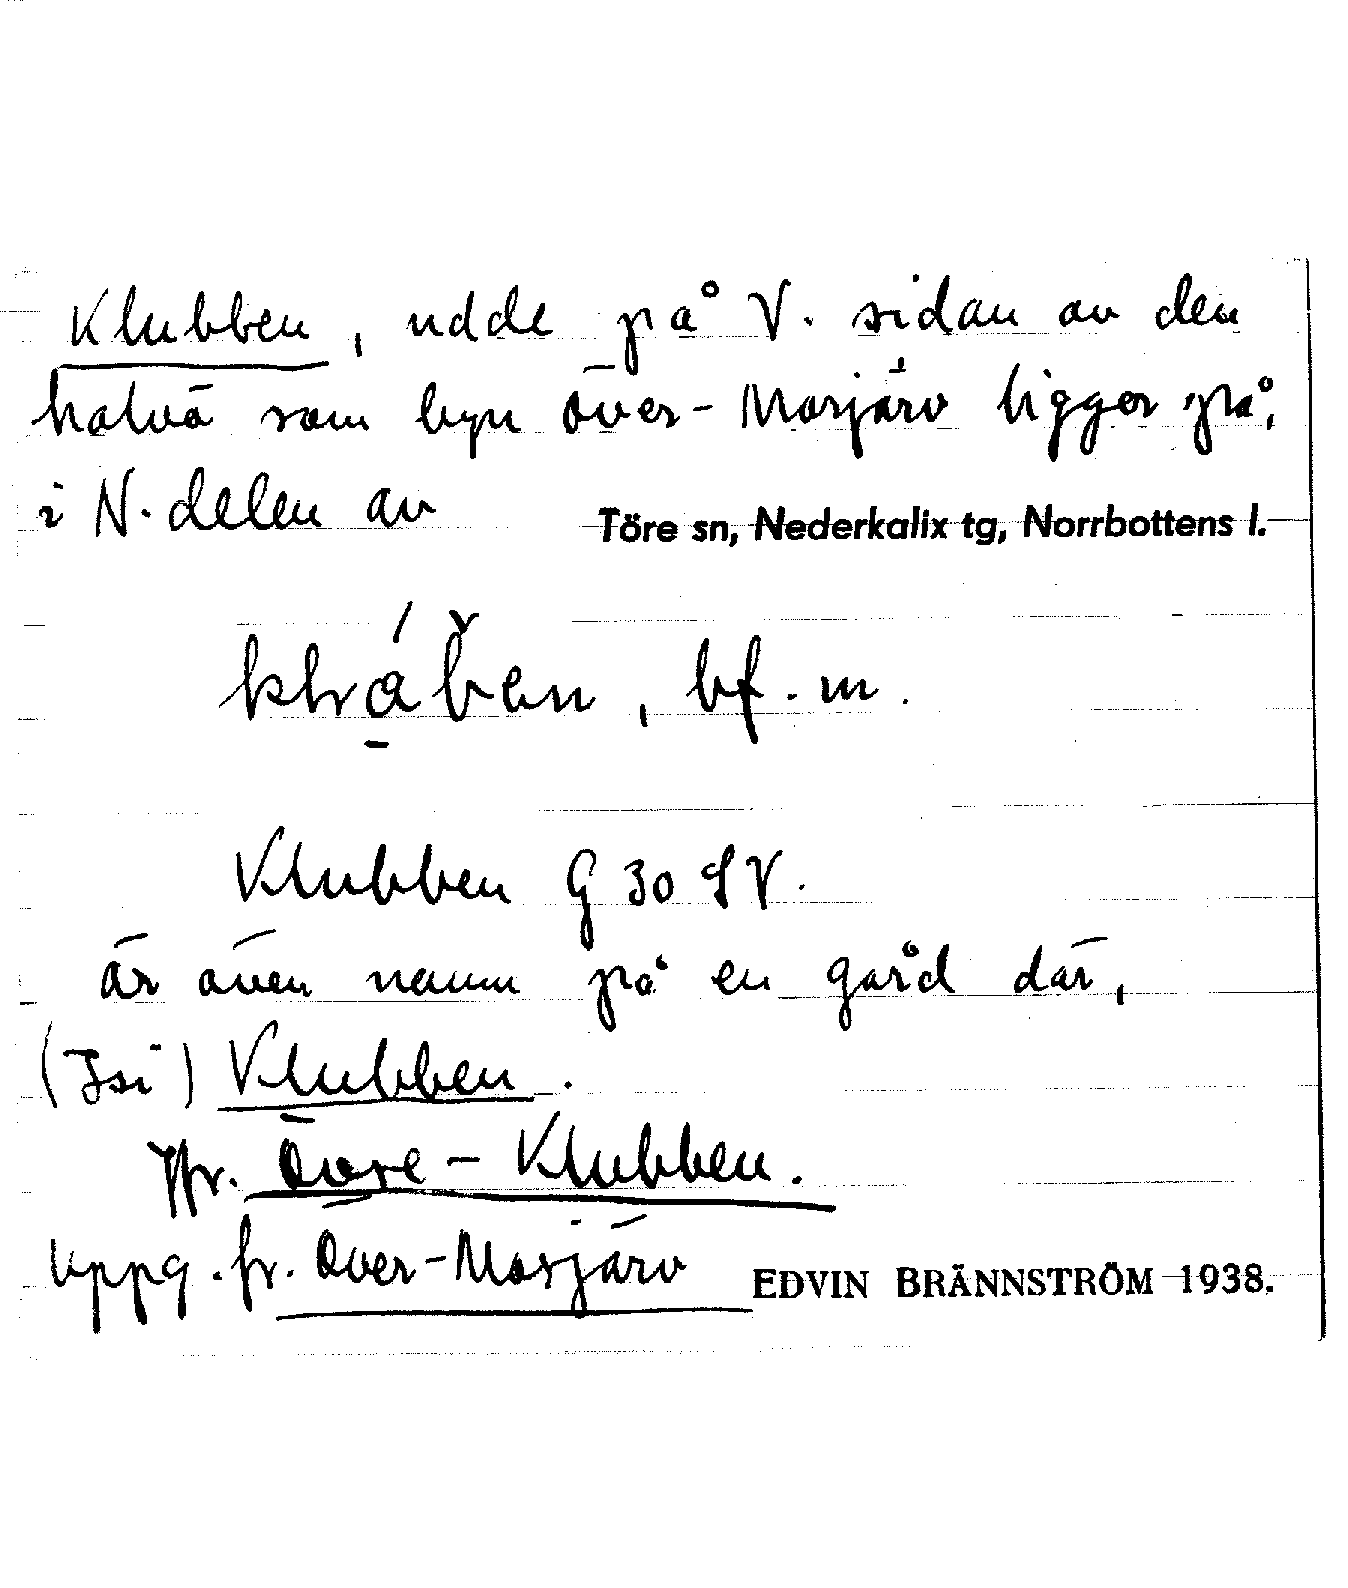 Klubben, udde på V. sidan av den
halvö som byn Över-Morjärv ligger på,
i N. delen av Töre sn, Nederkalix tg, Norrbottens l.
bf. m.
Klubben G 30 SV.
är även namn på en gård där,
Klubben.
Jfr. Övre-Klubben.
Uppg. fr. Över-Morjärv EDVIN BRÄNNSTRÖM 1938.